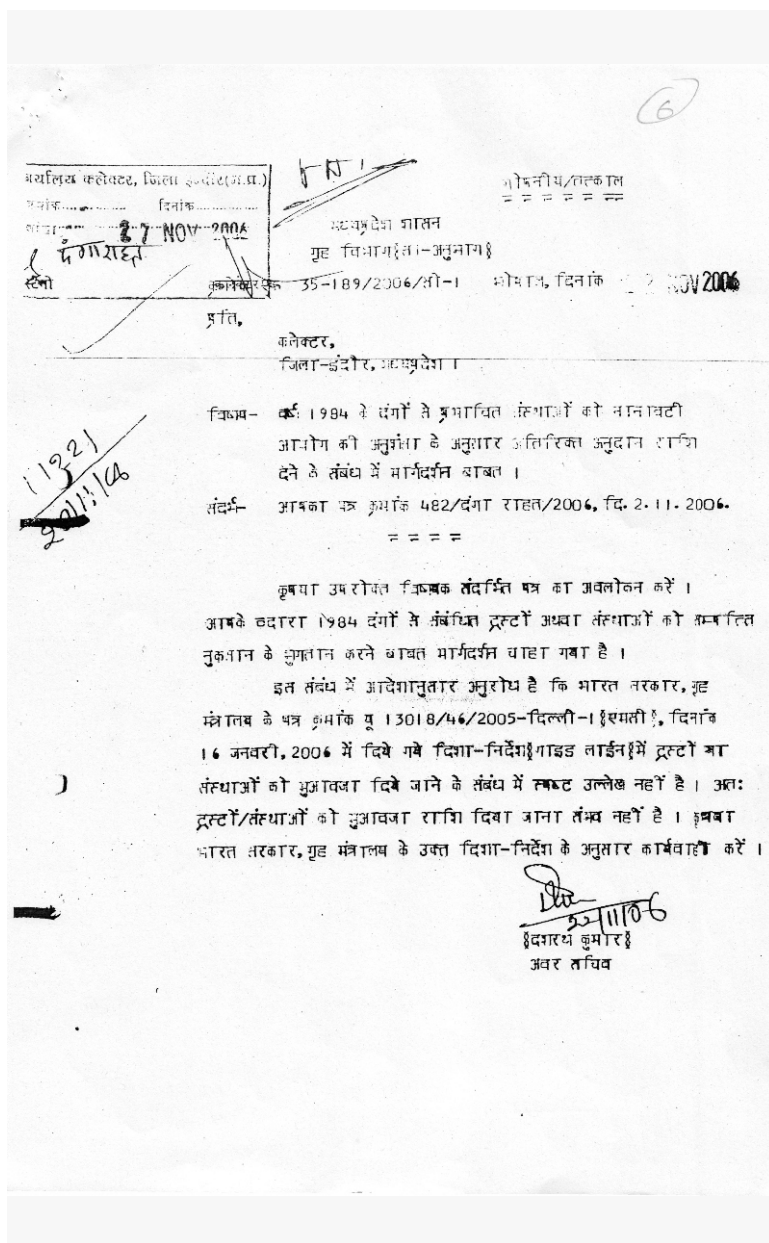 6
कार्यालय कलेक्टर, जिला इन्दौर(म.प्र.)
गोपनीय/तत्काल
= = = = = ==
क्रमांक............ दिनांक...............
27 NOV 2006
मध्यप्रदेश शासन
दंगा राहत
गृह विभाग§सी-अनुभाग§
स्टेनो
क्रमांक एफ 35-189/2006/सी-1 भोपाल, दिनांक 22 NOV 2006
प्रति,
कलेक्टर,
जिला-इंदौर, मध्यप्रदेश ।
विषय- वर्ष 1984 के दंगों से प्रभावित संस्थाओं को नानावटी
आयोग की अनुशंसा के अनुसार अतिरिक्त अनुदान राशि
देने के संबंध में मार्गदर्शन बाबत ।
संदर्भ- आपका पत्र क्रमांक 482/दंगा राहत/2006, दि. 2.11.2006.
= = = =
कृपया उपरोक्त विषयक संदर्भित पत्र का अवलोकन करें ।
आपके व्दारा 1984 दंगों से संबंधित ट्रस्टों अथवा संस्थाओं को सम्पत्ति
नुकसान के भुगतान करने बाबत मार्गदर्शन चाहा गया है ।
इस संबंध में आदेशानुसार अनुरोध है कि भारत सरकार, गृह
मंत्रालय के पत्र क्रमांक यू 13018/46/2005-दिल्ली-1§एमसी§, दिनांक
16 जनवरी, 2006 में दिये गये दिशा-निर्देश§गाइड लाईन§में ट्रस्टों या
संस्थाओं को मुआवजा दिये जाने के संबंध में स्पष्ट उल्लेख नहीं है । अतः
ट्रस्टों/संस्थाओं को मुआवजा राशि दिया जाना संभव नहीं है । कृपया
भारत सरकार, गृह मंत्रालय के उक्त दिशा-निर्देश के अनुसार कार्यवाही करें ।
22/11/06
§दशरथ कुमार§
अवर सचिव